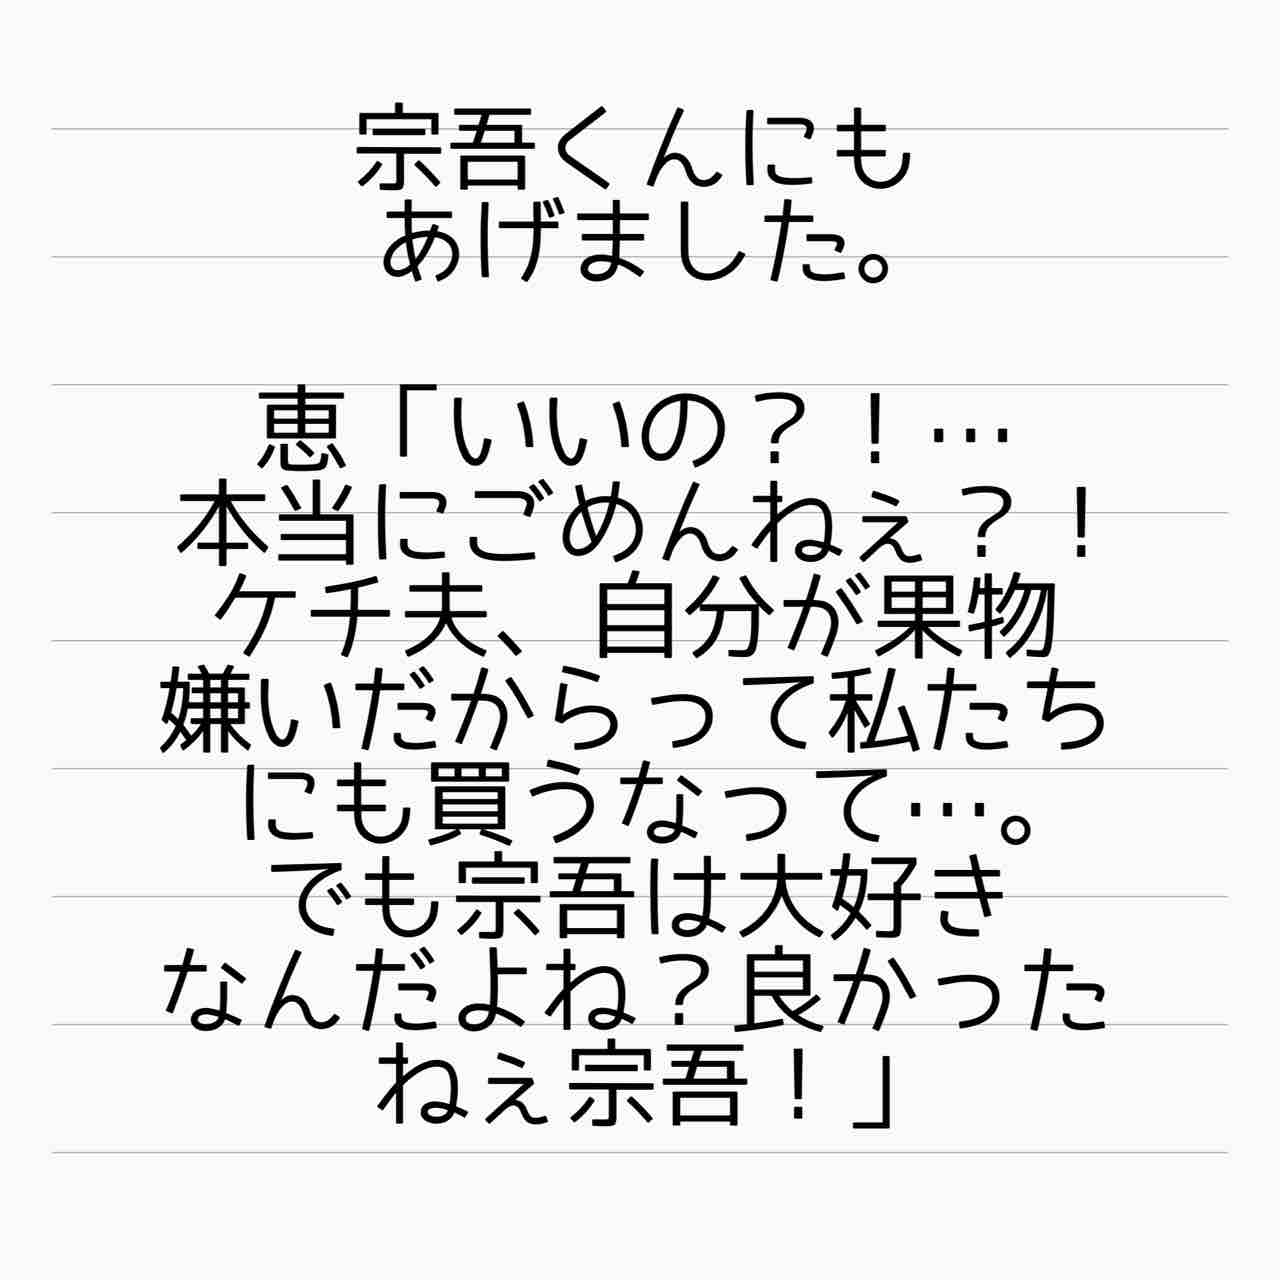 宗吾くんにも
あげました。
恵「いいの？！…
本当にごめんねぇ？！
ケチ夫、自分が果物
嫌いだからって私たち
にも買うなって…。
でも宗吾は大好き
なんだよね？良かった
ねぇ宗吾！」